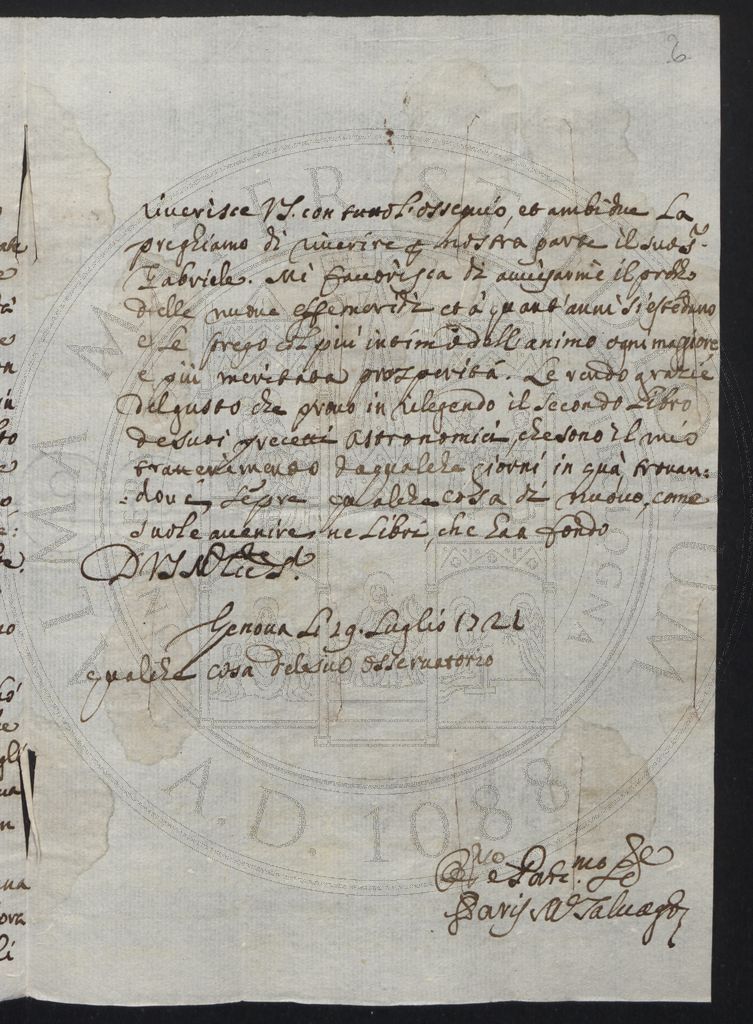 6
riverisce VS. con tutto l'ossequio, et ambidue La
preghiamo di riverire p nostra parte il suo S.r
Gabriele. Mi favorisca di avvisarmi il prezzo
delle nuove effemeridi et a quant'anni si estēdano
e Le prego col più intimo dell'animo ogni maggiore
e più meritata prosperità. Le rendo grazie
del gusto che provo in rilegendo il secondo Libro
de suoi precetti Astronomici, che sono il mio
trattenimento da qualche giorni in quà, trovan:
:dovi sēpre qualche cosa di nuovo, come
suole avenire ne Libri, che han fondo
DVS
Genova Li 29. Luglio 1721
qualche cosa del suo osservatorio
Paris M.a Salvago
ALMA MATER STUDIORUM
A.D. 1088